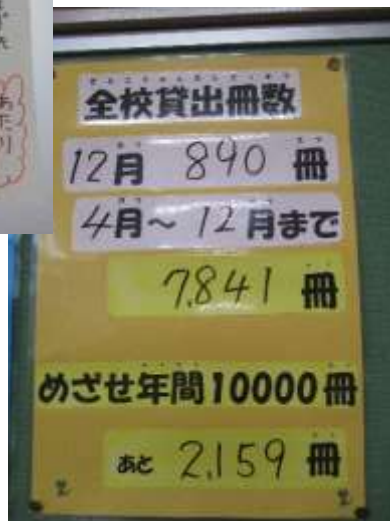 あたり
全校貸出冊数
12月 890 冊
4月~12月まで
7,841 冊
めざせ年間10000冊
あと 2,159 冊